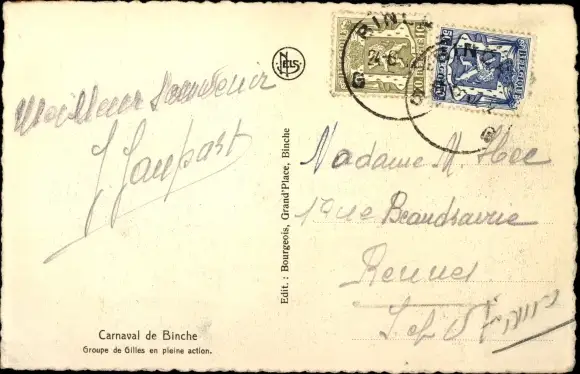 Meilleur Souvenir
J Gaupart
Carnaval de Binche
Groupe de Gilles en pleine action.
Edit. : Bourgeois, Grand'Place, Binche
NELS
BINCHE
BELGIQUE
Madame M. Hee
1 rue Beaudrairie
Rennes
I et V